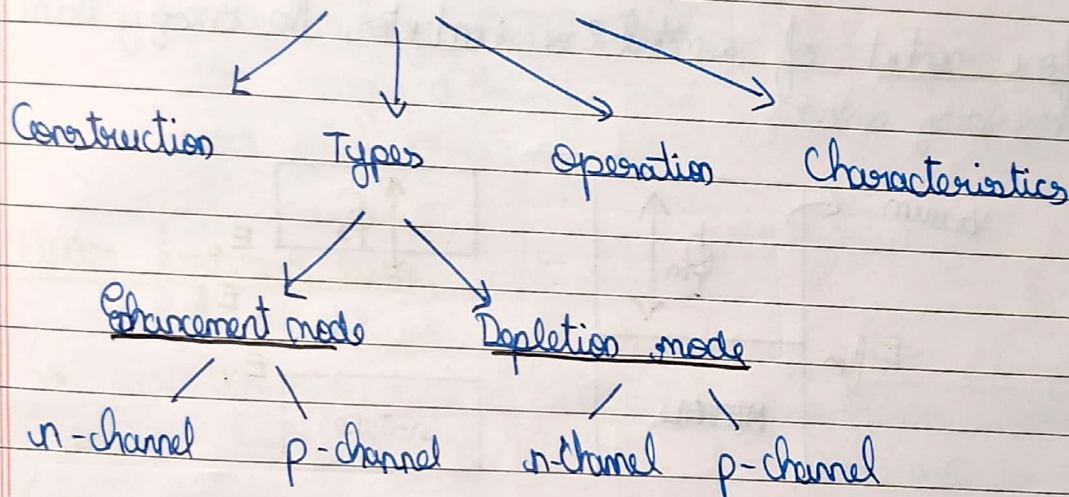 Construction Types Operation Characteristics
Enhancement mode Depletion mode
n-channel p-channel n-channel p-channel